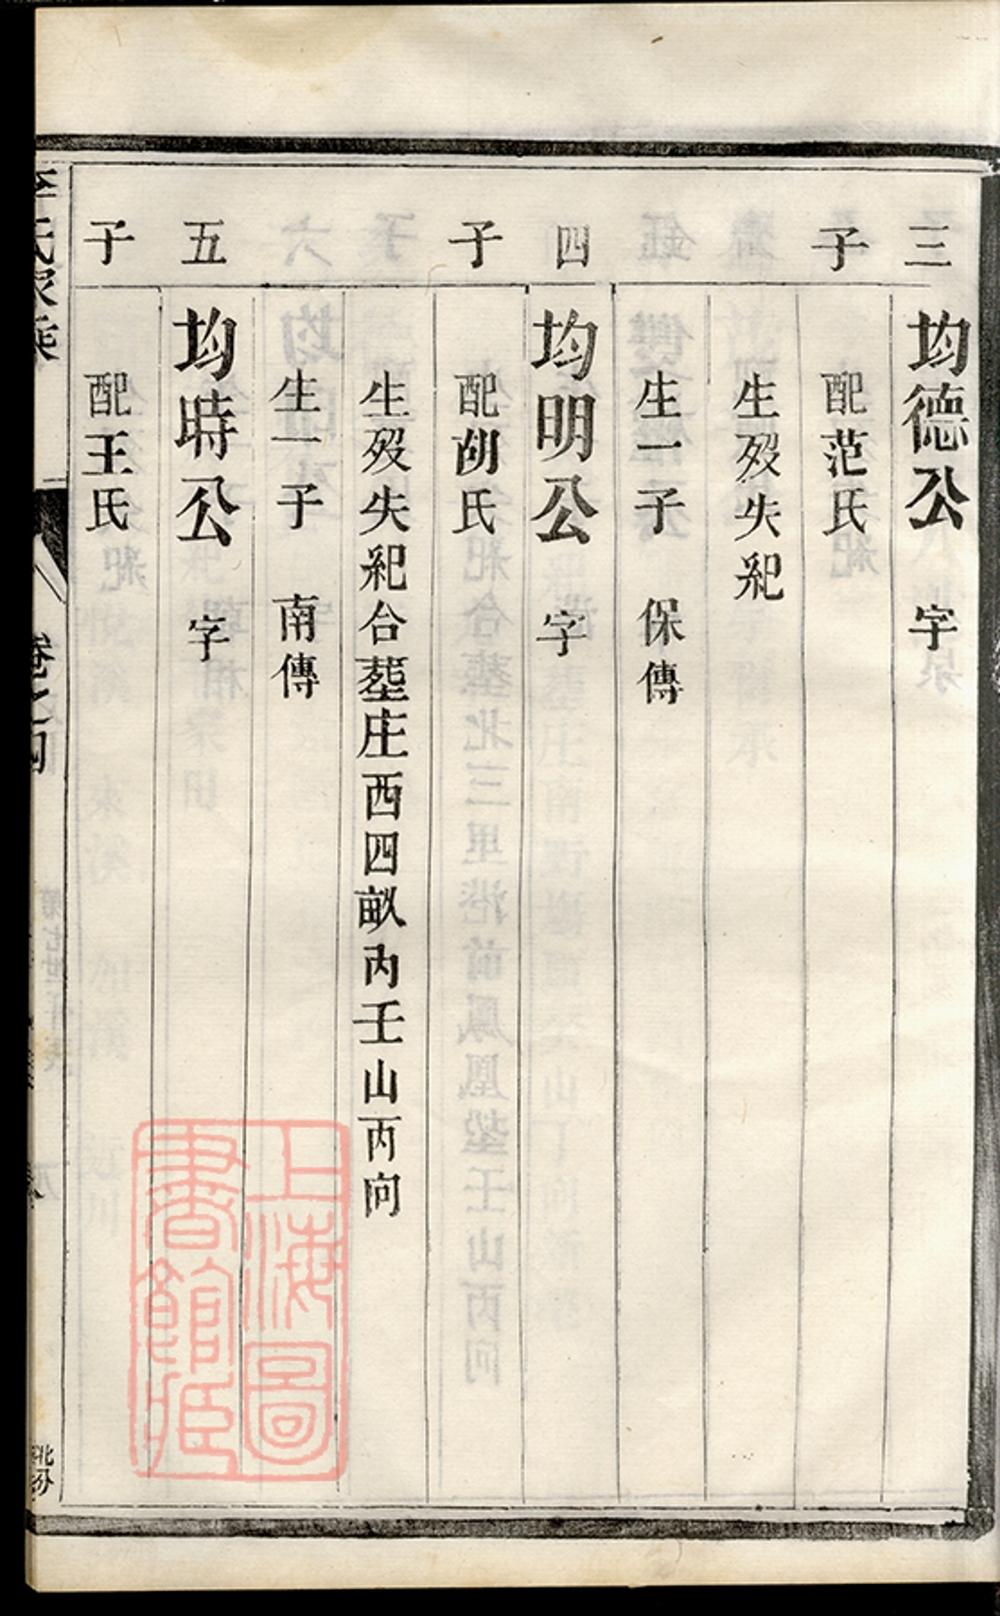 三 均德公 字
子 配范氏
生歿失紀
生一子 保傳
四 均明公 字
子 配胡氏
生歿失紀合塟庄西四畝內壬山丙向
生一子 南傳
五 均時公 字
子 配王氏
氏家乘
卷之四
上海圖
書館藏